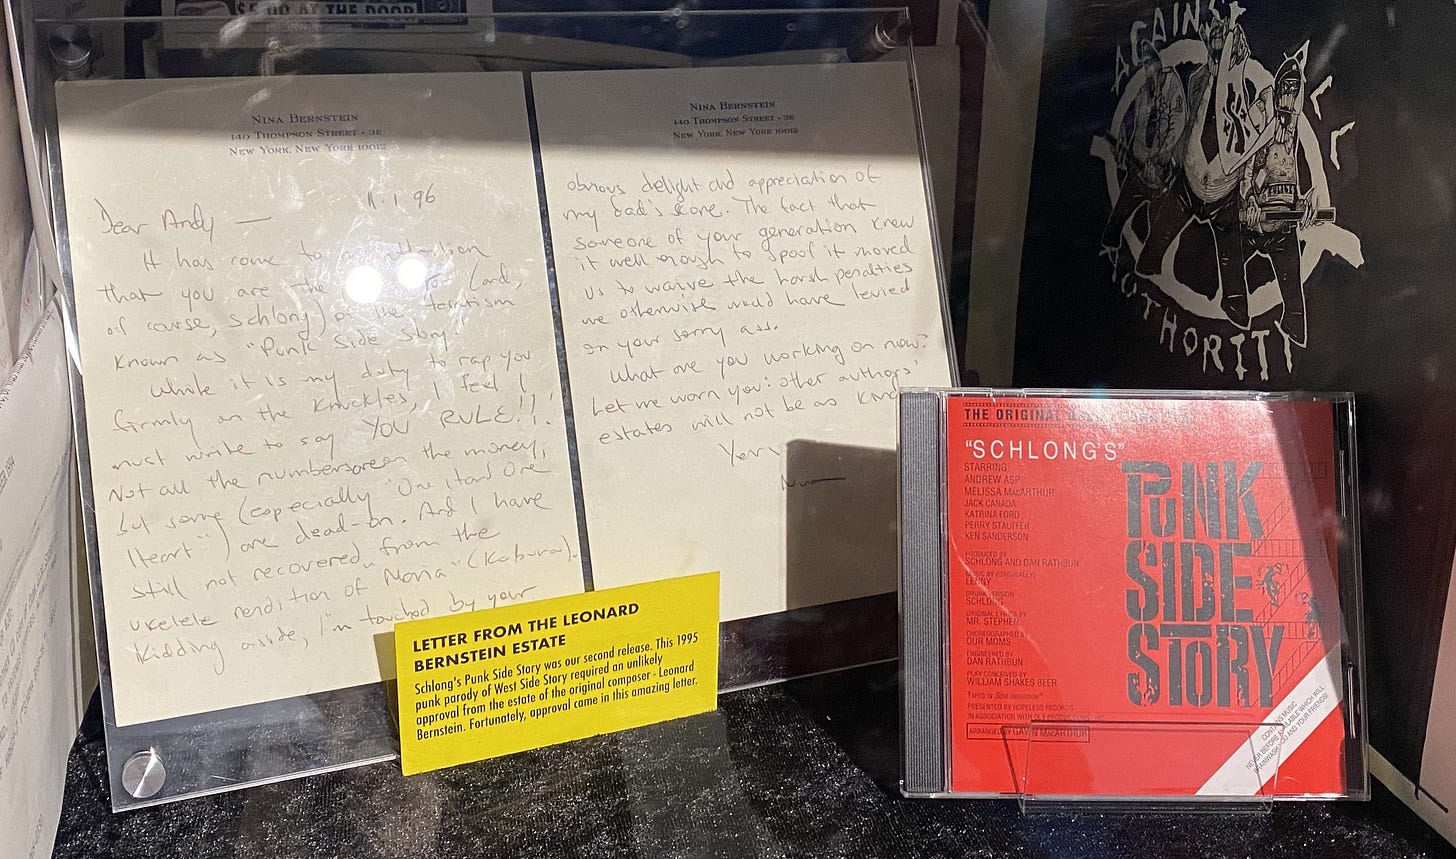 $5.00 AT THE DOOR
NINA BERNSTEIN
140 THOMPSON STREET • 3E
NEW YORK, NEW YORK 10012
11.1.96
Dear Andy —
It has come to attention
that you are the (and,
of course, Schlong) of the terrorism
known as "Punk Side Story"
While it is my duty to rap you
firmly on the knuckles, I feel I
must write to say YOU RULE!!!
Not all the numbers are on the money,
but some (especially "One Hand One
Heart") are dead-on. And I have
still not recovered from the
ukelele rendition of "Maria"
Kidding aside, I'm touched by your
NINA BERNSTEIN
140 THOMPSON STREET • 3E
NEW YORK, NEW YORK 10012
obvious delight and appreciation of
my dad's score. The fact that
someone of your generation knew
it well enough to spoof it moved
us to waive the harsh penalties
we otherwise would have levied
on your sorry ass.
What are you working on now?
Let me warn you: other authors'
estates will not be as
Yours
Nina
LETTER FROM THE LEONARD
BERNSTEIN ESTATE
Schlong's Punk Side Story was our second release. This 1995
punk parody of West Side Story required an unlikely
approval from the estate of the original composer - Leonard
Bernstein. Fortunately, approval came in this amazing letter.
AGAINST ALL AUTHORITY
THE ORIGINAL
"SCHLONG'S"
PUNK
SIDE
STORY
STARRING
ANDREW ASP
MELISSA MacARTHUR
JACK CANADA
KATRINA FORD
PERRY STAUFFER
KEN SANDERSON
PRODUCED BY
SCHLONG AND DAN RATHBUN
MUSIC BY (ORIGINALLY)
LENNY
DRUNK VERSION
SCHLONG
ORIGINAL LYRICS BY
MR. STEPHEN
CHOREOGRAPHED BY
OUR MOMS
ENGINEERED BY
DAN RATHBUN
PLAY CONCEIVED BY
WILLIAM SHAKES BEER
TAPED IN SCHLONGVISION™
PRESENTED BY HOPELESS RECORDS
IN ASSOCIATION WITH PRODUCTIONS, INC.
ARRANGED BY GAVIN MacARTHUR
CONTAINS MUSIC
NEVER BEFORE AVAILABLE WHICH WILL
BRAINWASH YOU AND YOUR FRIENDS!